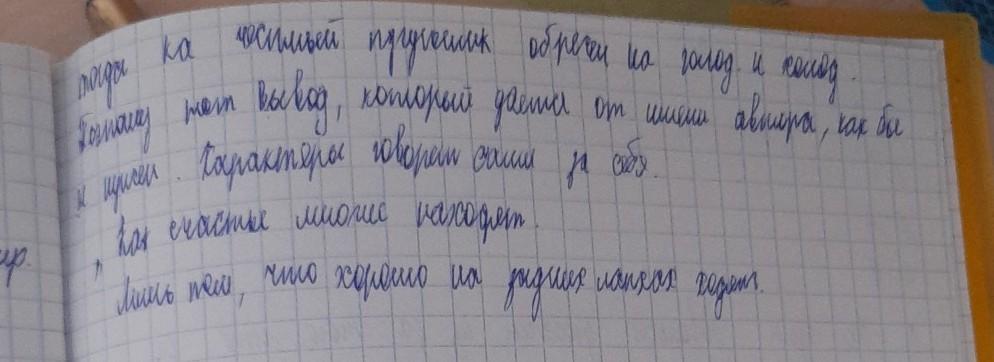 тогда ка честный труженик обречен на голод и холод.
Поэтому тот вывод, который дается от имени автора, как бы
и нужен. Характеры говорят сами за себя.
" Как счастье многие находят
Лишь тем, что хорошо на задних лапках ходят.